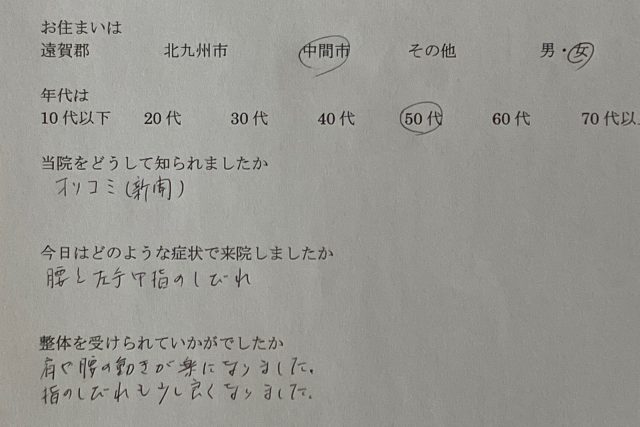 お住まいは
遠賀郡 北九州市 中間市 その他 男・女
年代は
10代以下 20代 30代 40代 50代 60代 70代以
当院をどうして知られましたか
オリコミ(新聞)
今日はどのような症状で来院しましたか
腰と左手中指のしびれ
整体を受けられていかがでしたか
肩や腰の動きが楽になりました。
指のしびれも少し良くなりました。